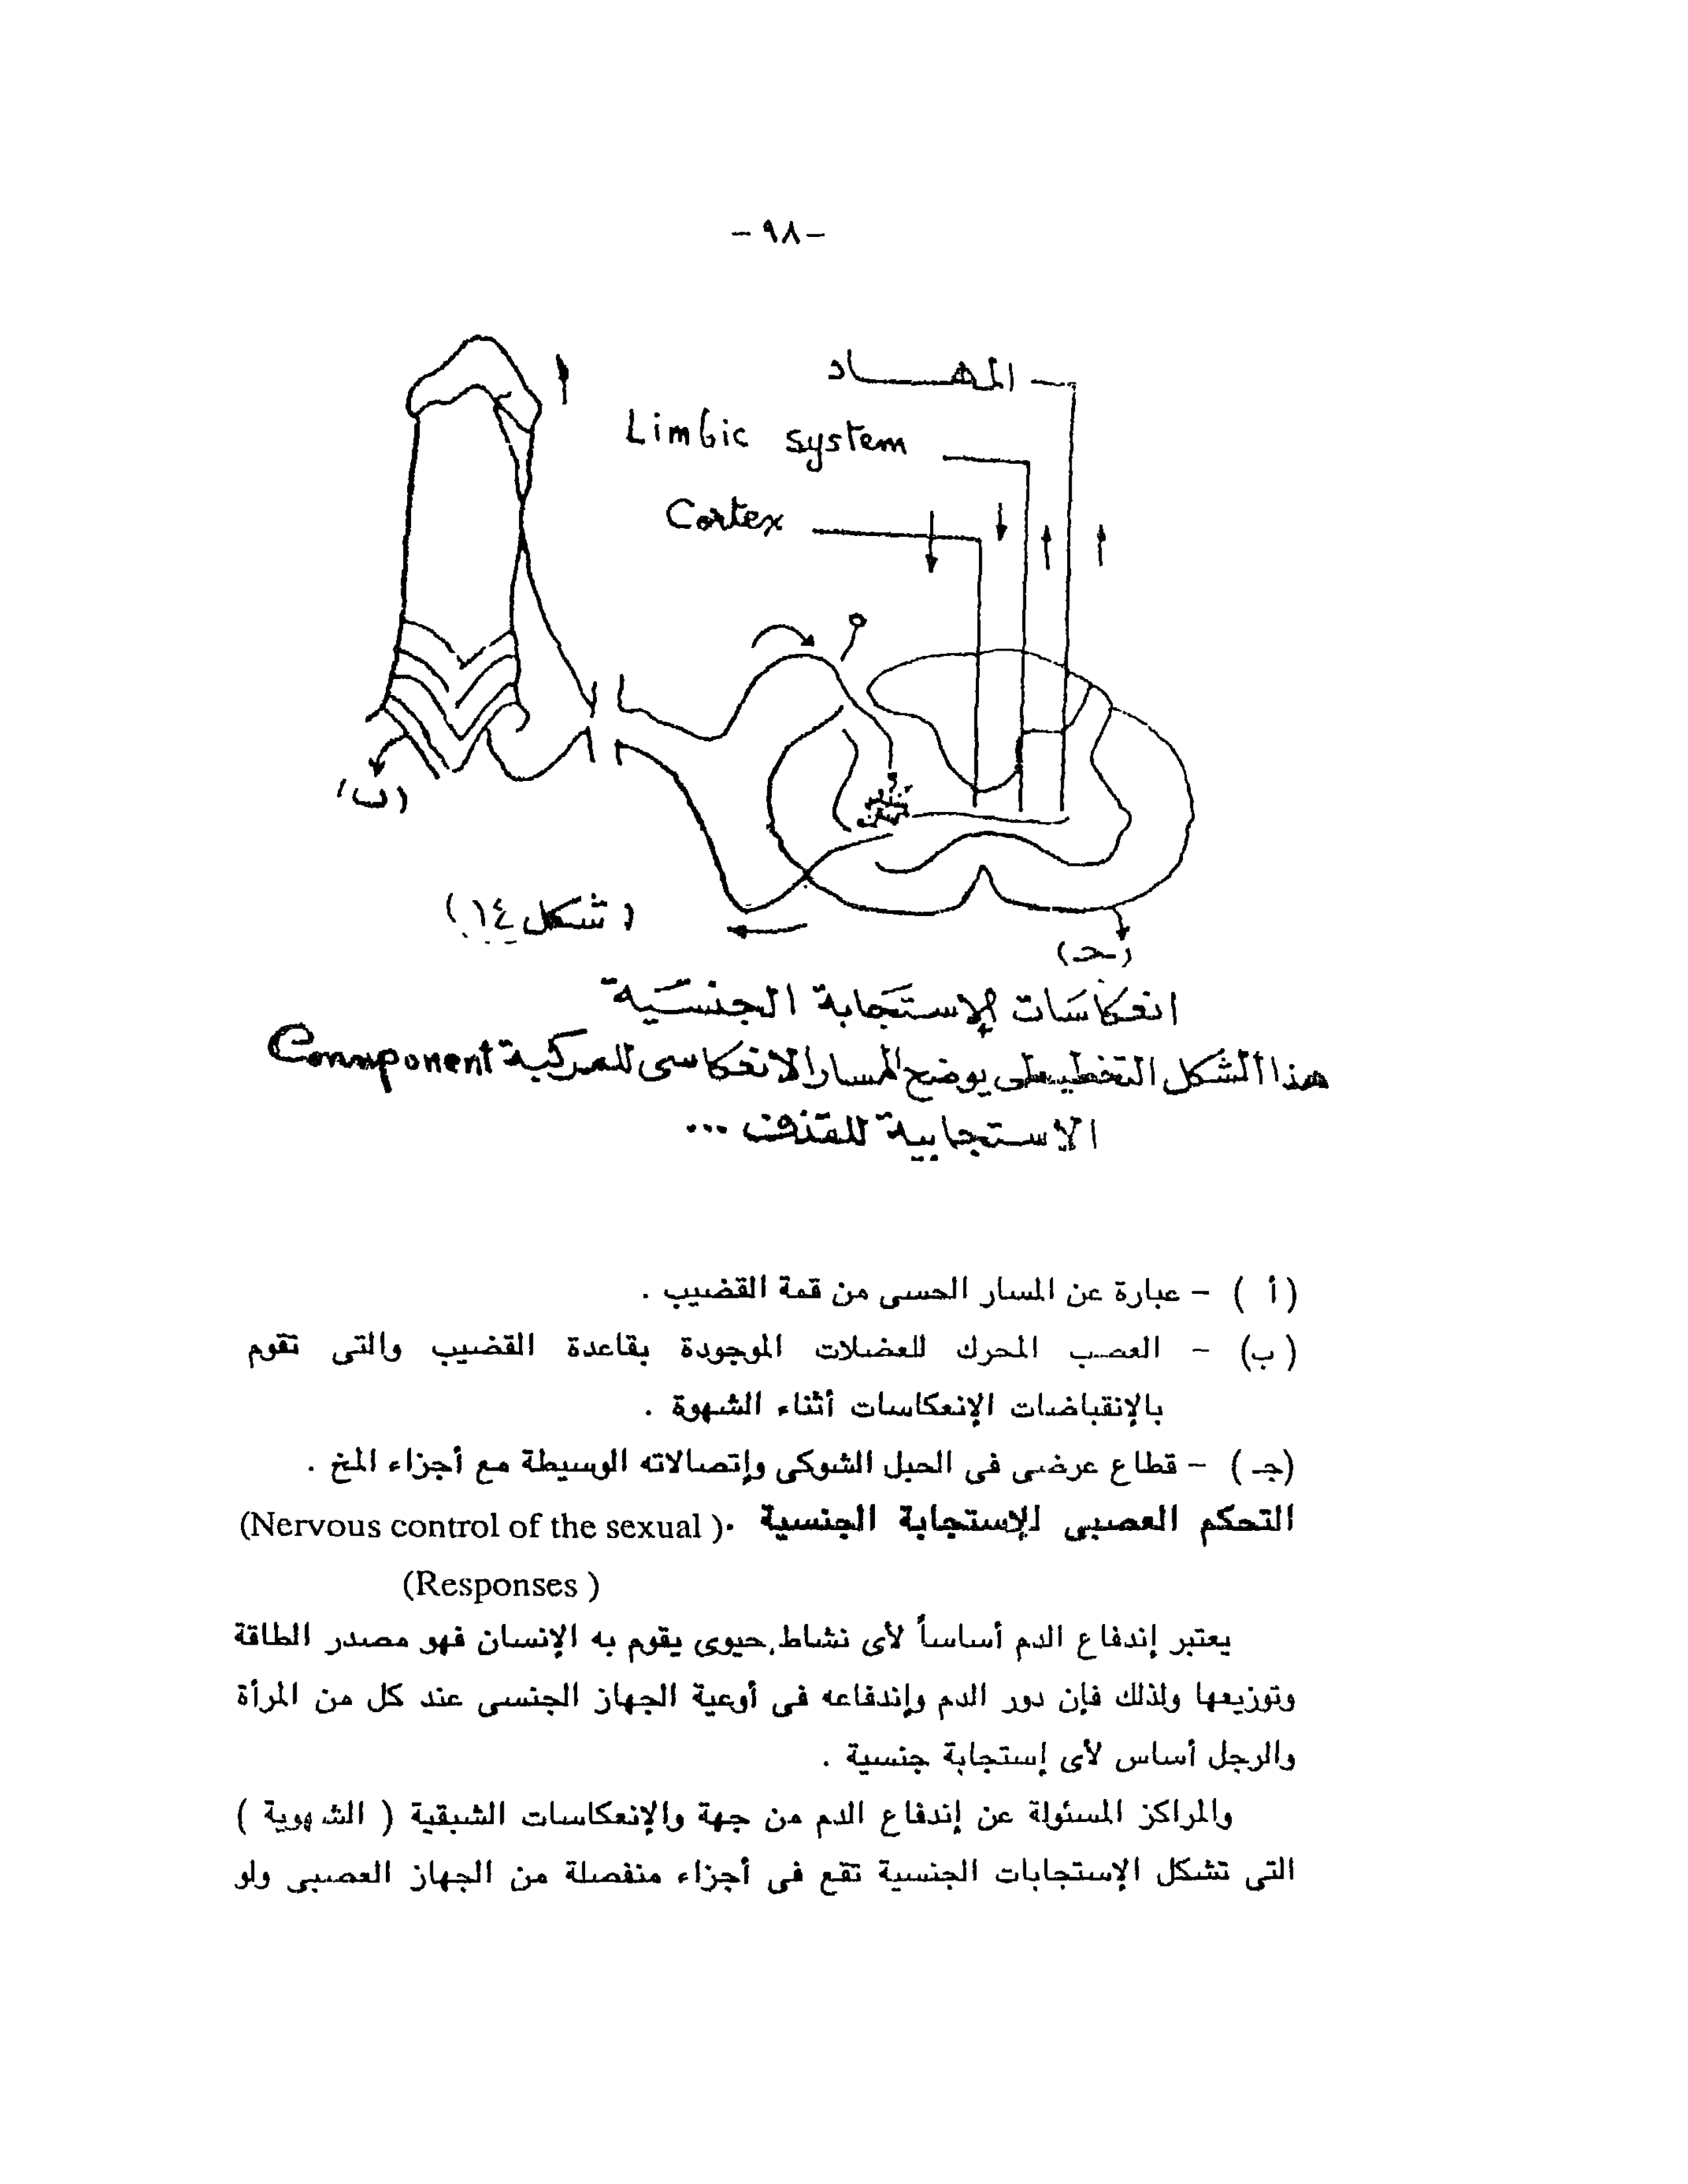 - ٩٨ -
المهاد
Limbic system
Cortex
(ب)
(شكل ١٤)
(جـ)
انعكاسات الإستجابة الجنسية
هذا الشكل التخطيطى يوضح المسار الانعكاسى للمركبة Component
الاستجابية للقذف ...
( أ ) - عبارة عن المسار الحسى من قمة القضيب .
( ب) - العصب المحرك للعضلات الموجودة بقاعدة القضيب والتى تقوم
بالإنقباضات الإنعكاسات أثناء الشهوة .
(جـ ) - قطاع عرضى فى الحبل الشوكى وإتصالاته الوسيطة مع أجزاء المخ .
التحكم العصبى للإستجابة الجنسية .( Nervous control of the sexual)
(Responses )
يعتبر إندفاع الدم أساساً لأى نشاط حيوى يقوم به الإنسان فهو مصدر الطاقة
وتوزيعها ولذلك فإن دور الدم وإندفاعه فى أوعية الجهاز الجنسى عند كل من المرأة
والرجل أساس لأى إستجابة جنسية .
والمراكز المسئولة عن إندفاع الدم من جهة والإنعكاسات الشبقية ( الشهوية )
التى تشكل الإستجابات الجنسية تقع فى أجزاء منفصلة من الجهاز العصبى ولو